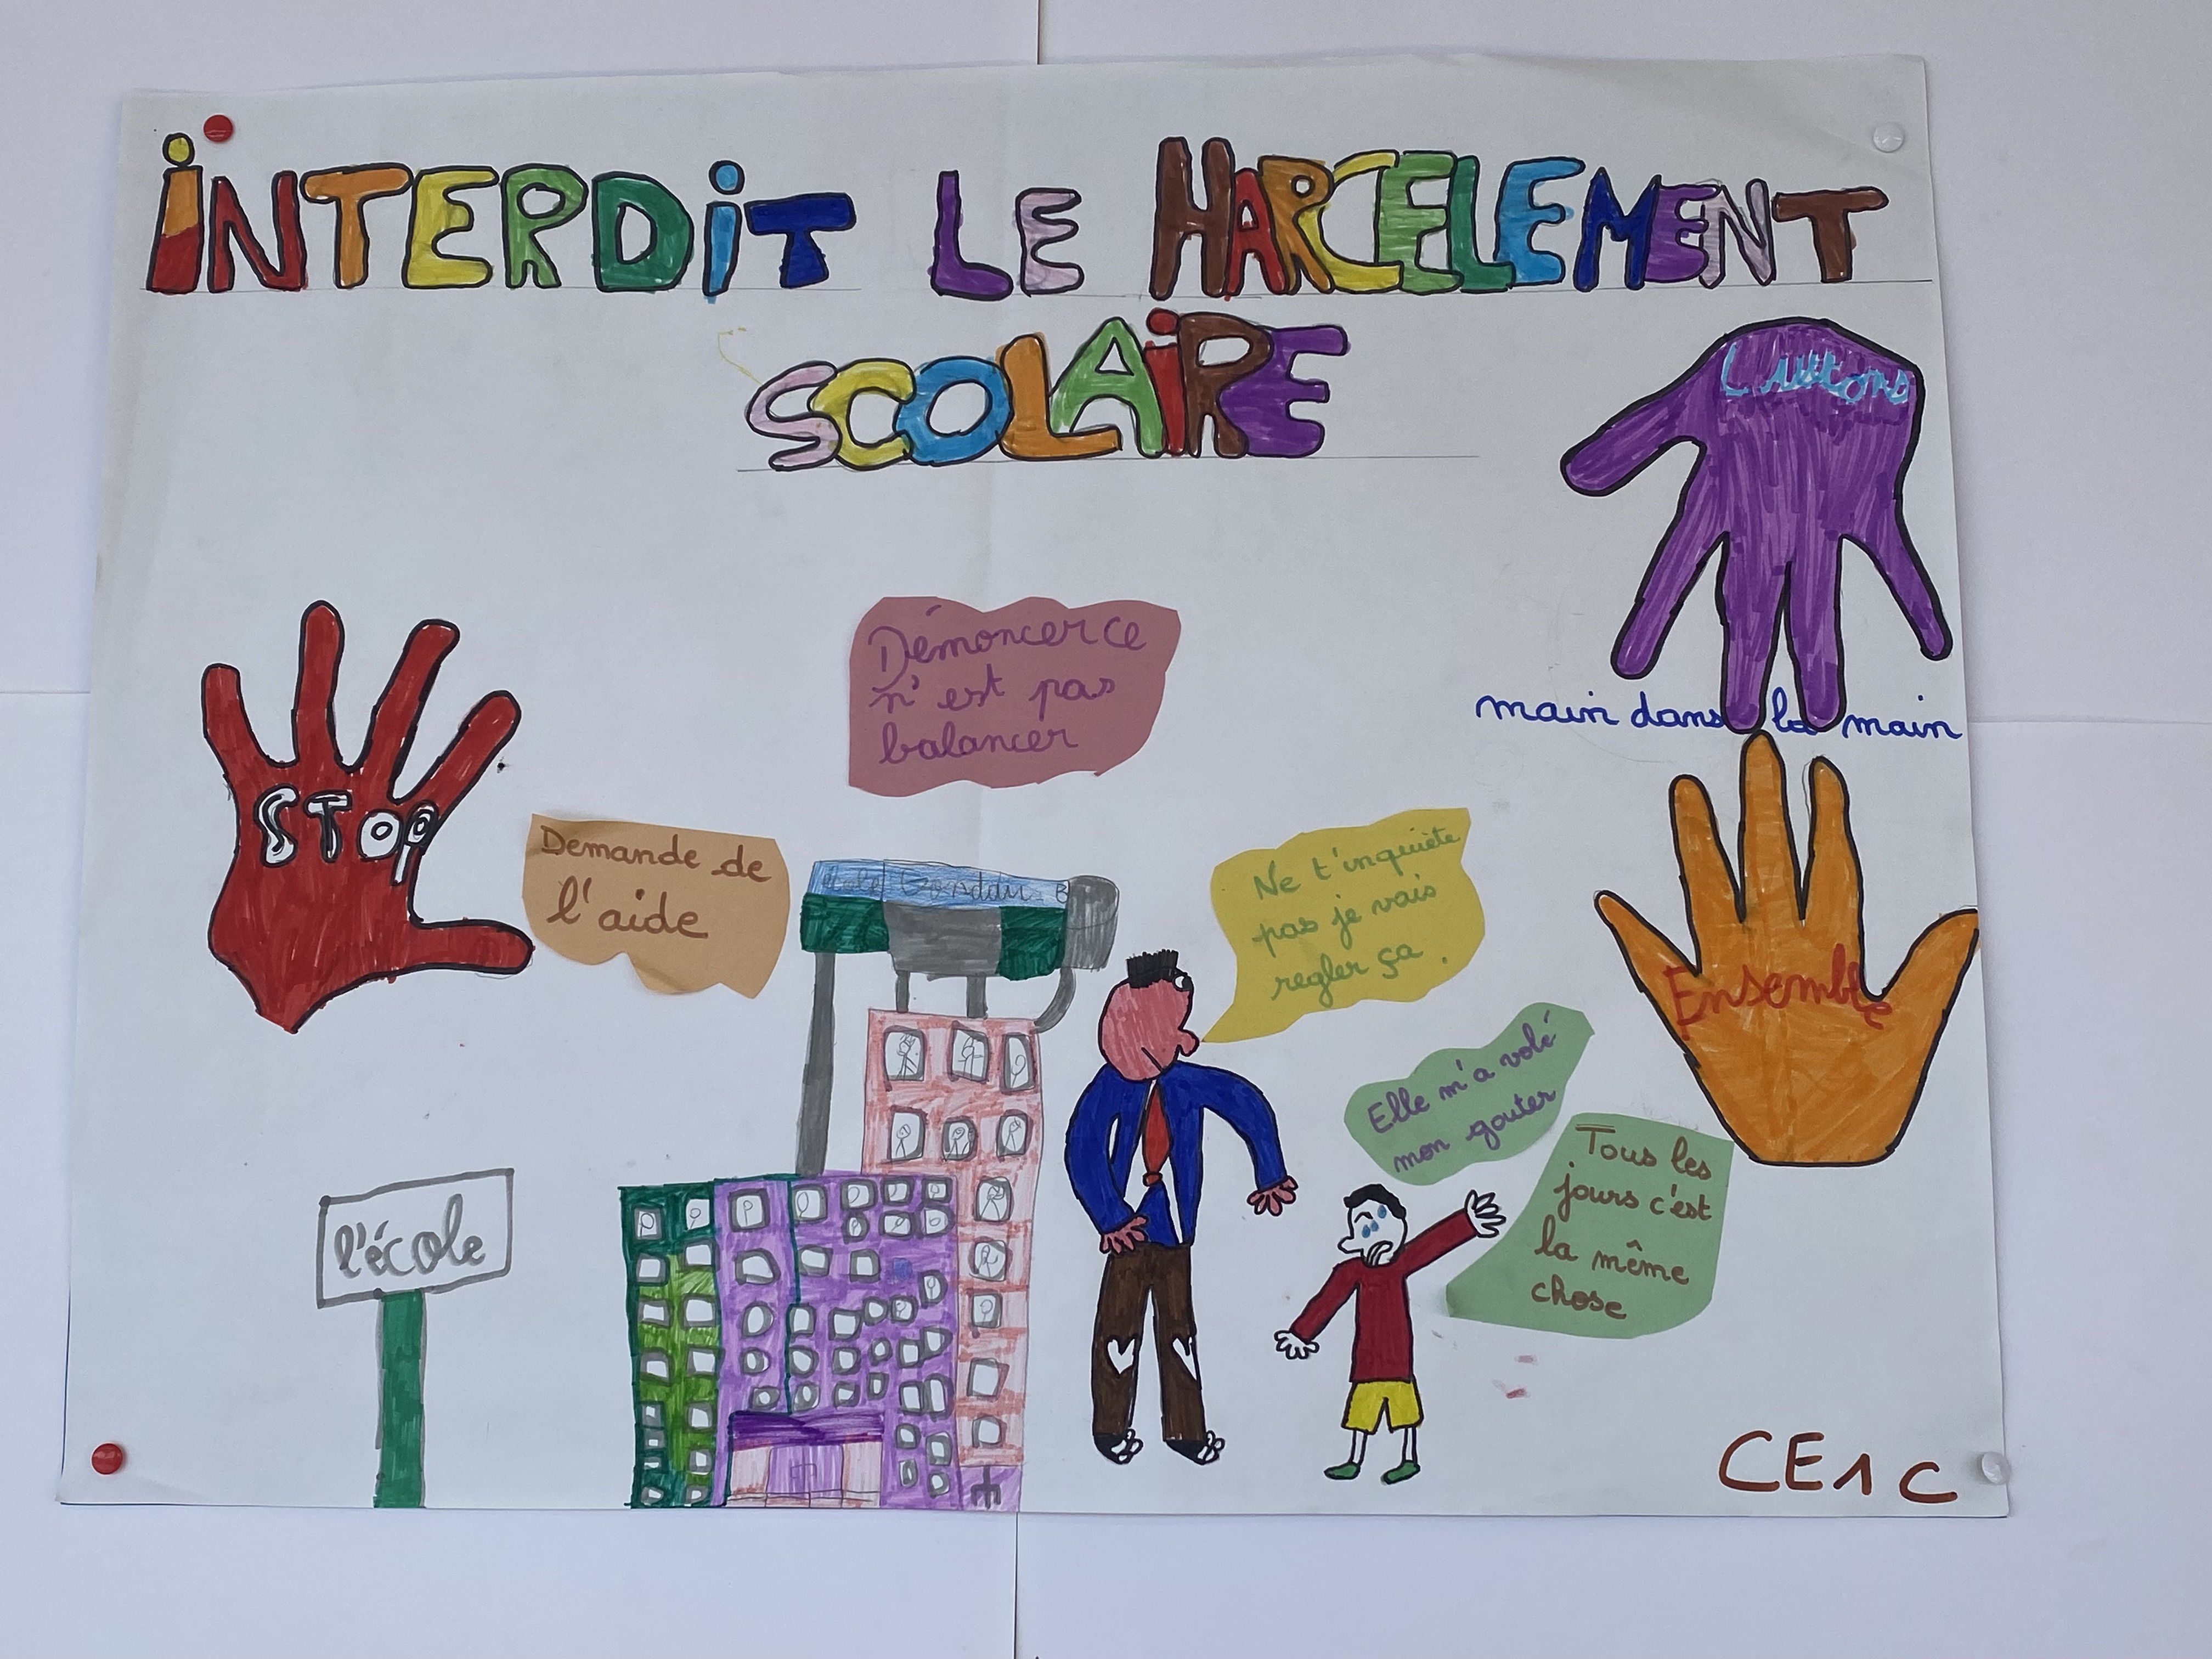 iNTERDiT LE HARCELEMENT
SCOLAiRE
Luttons
main dans la main
Ensemble
STOP
Dénoncer ce
n'est pas
balancer
Demande de
l'aide
Ne t'inquiète
pas je vais
regler ça.
Elle m'a volé
mon gouter
Tous les
jours c'est
la même
chose
l'école
CE1 C